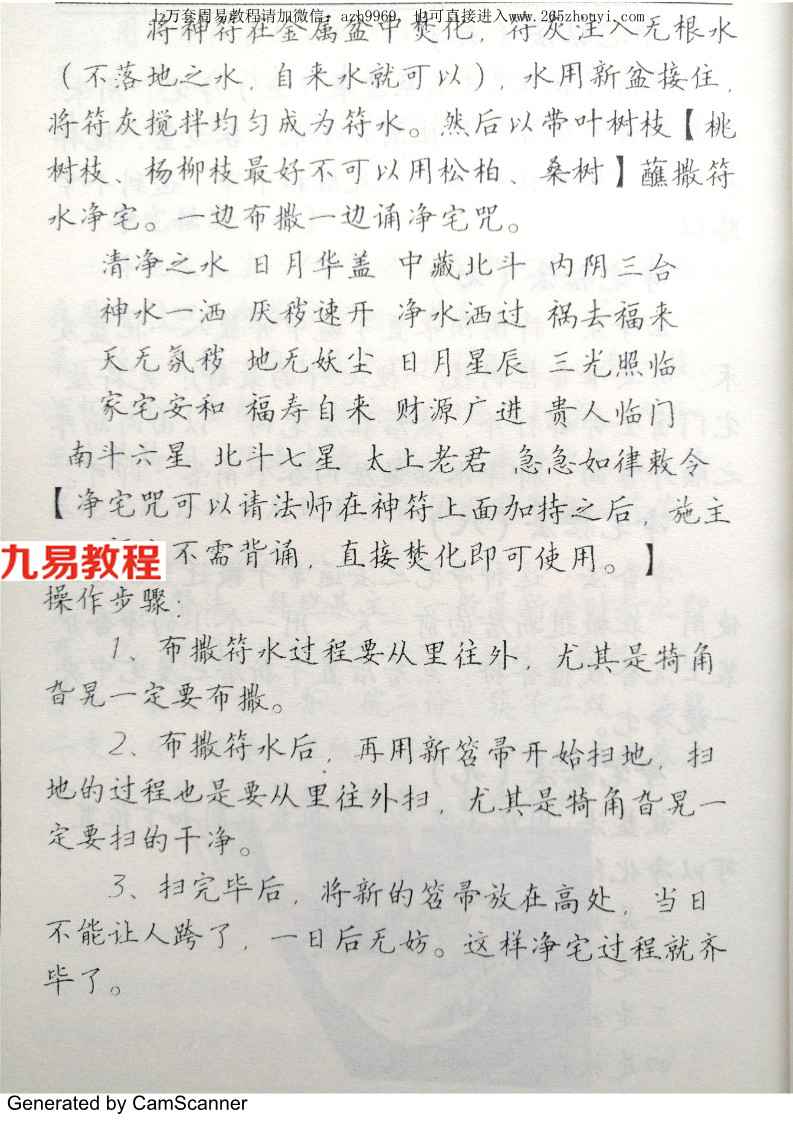 上万套周易教程请加微信:azh9969,也可直接进入www.265zhouyi.com
将神符在金属盆中焚化,符灰注入无根水
(不落地之水,自来水就可以),水用新盆接住,
将符灰搅拌均匀成为符水。然后以带叶树枝【桃
树枝、杨柳枝最好不可以用松柏、桑树】蘸撒符
水净宅。一边布撒一边诵净宅咒。
清净之水 日月华盖 中藏北斗 内阴三台
神水一洒 厌秽速开 净水洒过 祸去福来
天无氛秽 地无妖尘 日月星辰 三光照临
家宅安和 福寿自来 财源广进 贵人临门
南斗六星 北斗七星 太上老君 急急如律敕令
【净宅咒可以请法师在神符上面加持之后,施主
九易教程 不需背诵,直接焚化即可使用。】
操作步骤:
1、布撒符水过程要从里往外,尤其是犄角
旮晃一定要布撒。
2、布撒符水后,再用新笤帚开始扫地,扫
地的过程也是要从里往外扫,尤其是犄角旮晃一
定要扫的干净。
3、扫完毕后,将新的笤帚放在高处,当日
不能让人跨了,一日后无妨。这样净宅过程就齐
毕了。
Generated by CamScanner